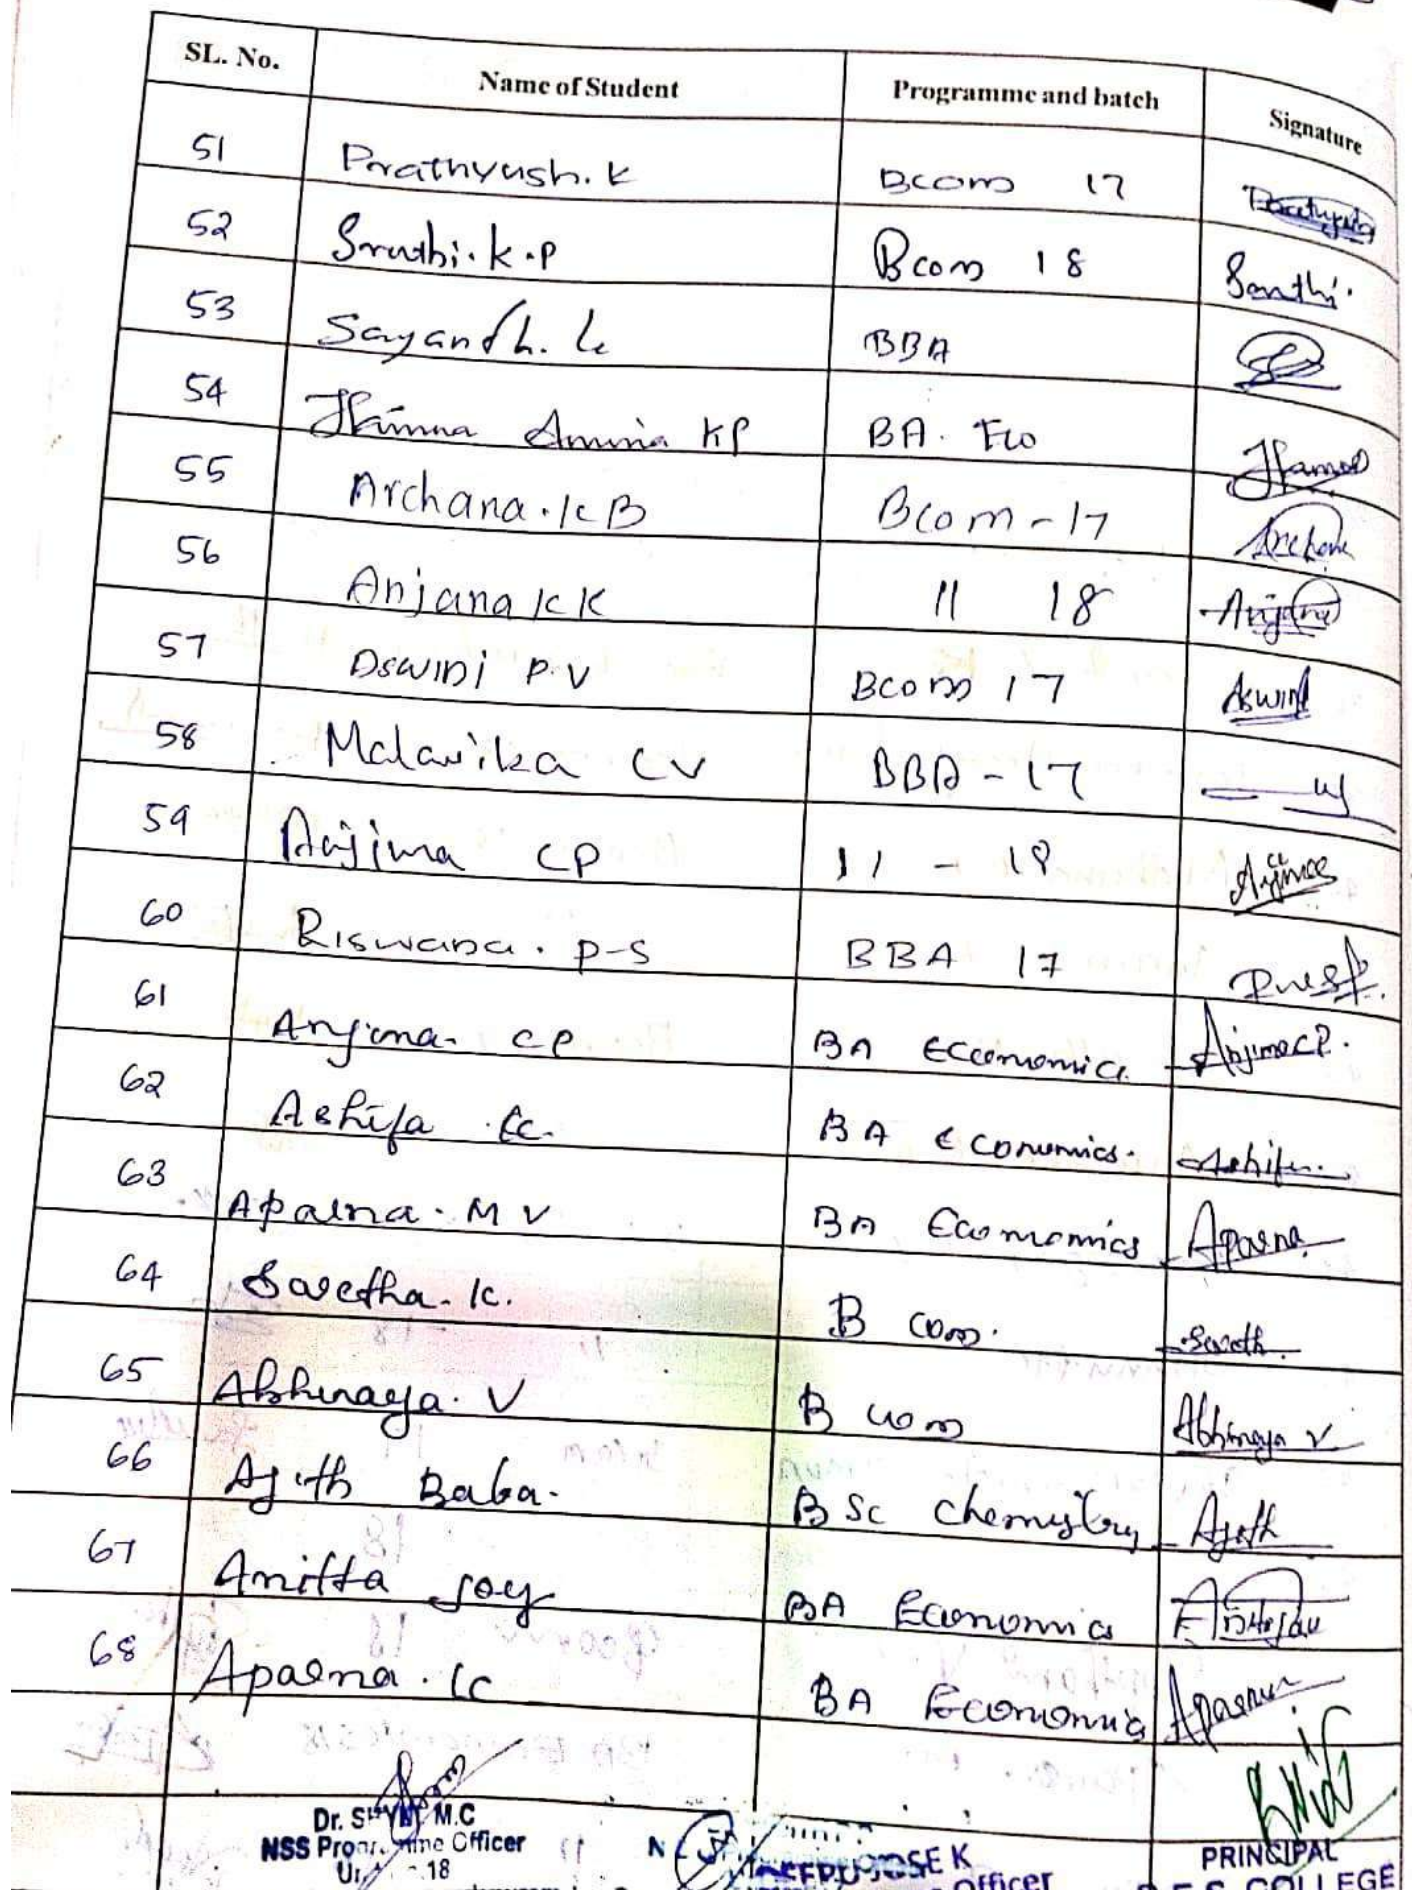 SL. No. Name of Student Programme and batch Signature
51 Prathyush. K Bcom 17
52 Sruthi. K. P Bcom 18
53 Sayanth. K BBA
54 Hamna Amina KP BA. Eco
55 Archana. K B Bcom - 17 Archana
56 Anjana K K 11 18 Anjana
57 Aswini P. V Bcom 17 Aswini
58 Malavika CV BBA - 17
59 Anjima CP 11 - 18
60 Riswana. P-S BBA 17
61 Anjima. CP BA Economics AnjimaCP.
62 Ashifa K. BA Economics. Ashifa.
63 Aparna. M V BA Economics Aparna
64 K. B com.
65 Abhinaya. V B com Abhinaya V
66 Ajith Baba. B Sc Chemistry Ajith
67 Anitta Joy BA Economics
68 Aparna. K BA Economics Aparna
Dr. M.C
NSS Programme Officer
18
JOSE K
Officer
PRINCIPAL
COLLEGE